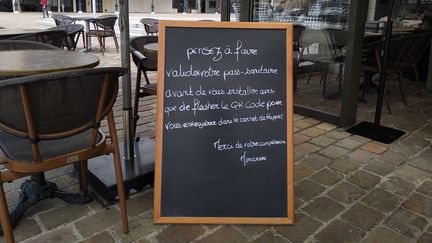 pensez à faire
valider votre pass-sanitaire
avant de vous installer ainsi
que de flasher le QR Code pour
vous enregistrer dans le carnet de Rappel
Merci de votre compréhension